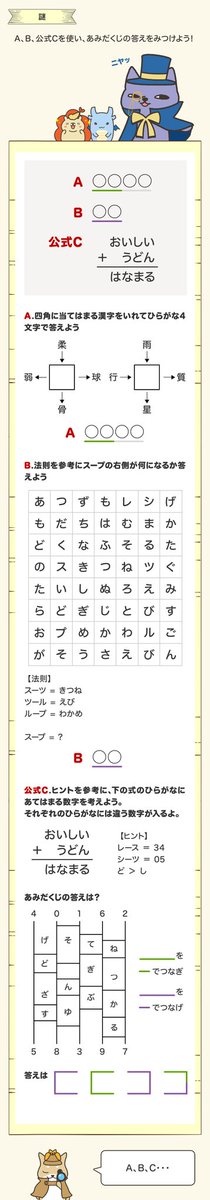 謎
A、B、公式Cを使い、あみだくじの答えをみつけよう!
ニヤッ
A ○○○○
B ○○
公式C おいしい
+ うどん
はなまる
A.四角に当てはまる漢字をいれてひらがな4
文字で答えよう
柔 雨
弱 球 行 質
骨 星
A ○○○○
B.法則を参考にスープの右側が何になるか答
えよう
あ つ ず も レ シ げ
も だ ち は む ま か
ど く な ふ そ る た
の ス き つ ね ツ ぐ
た い し ぬ ろ え み
ら ど ぎ じ と び す
お プ め か わ ル ご
が そ う さ え び ん
【法則】
スーツ = きつね
ツール = えび
ループ = わかめ
スープ = ?
B ○○
公式C.ヒントを参考に、下の式のひらがなに
あてはまる数字を考えよう。
それぞれのひらがなには違う数字が入るよ。
おいしい
+ うどん
はなまる
【ヒント】
レース = 34
シーツ = 05
ど > し
あみだくじの答えは?
4 0 1 6 2
げ そ て ね
ど ぎ つ
ざ ん ぶ か
す ゆ る
5 8 3 9 7
を
でつなぎ
を
でつなげ
答えは
A、B、C・・・